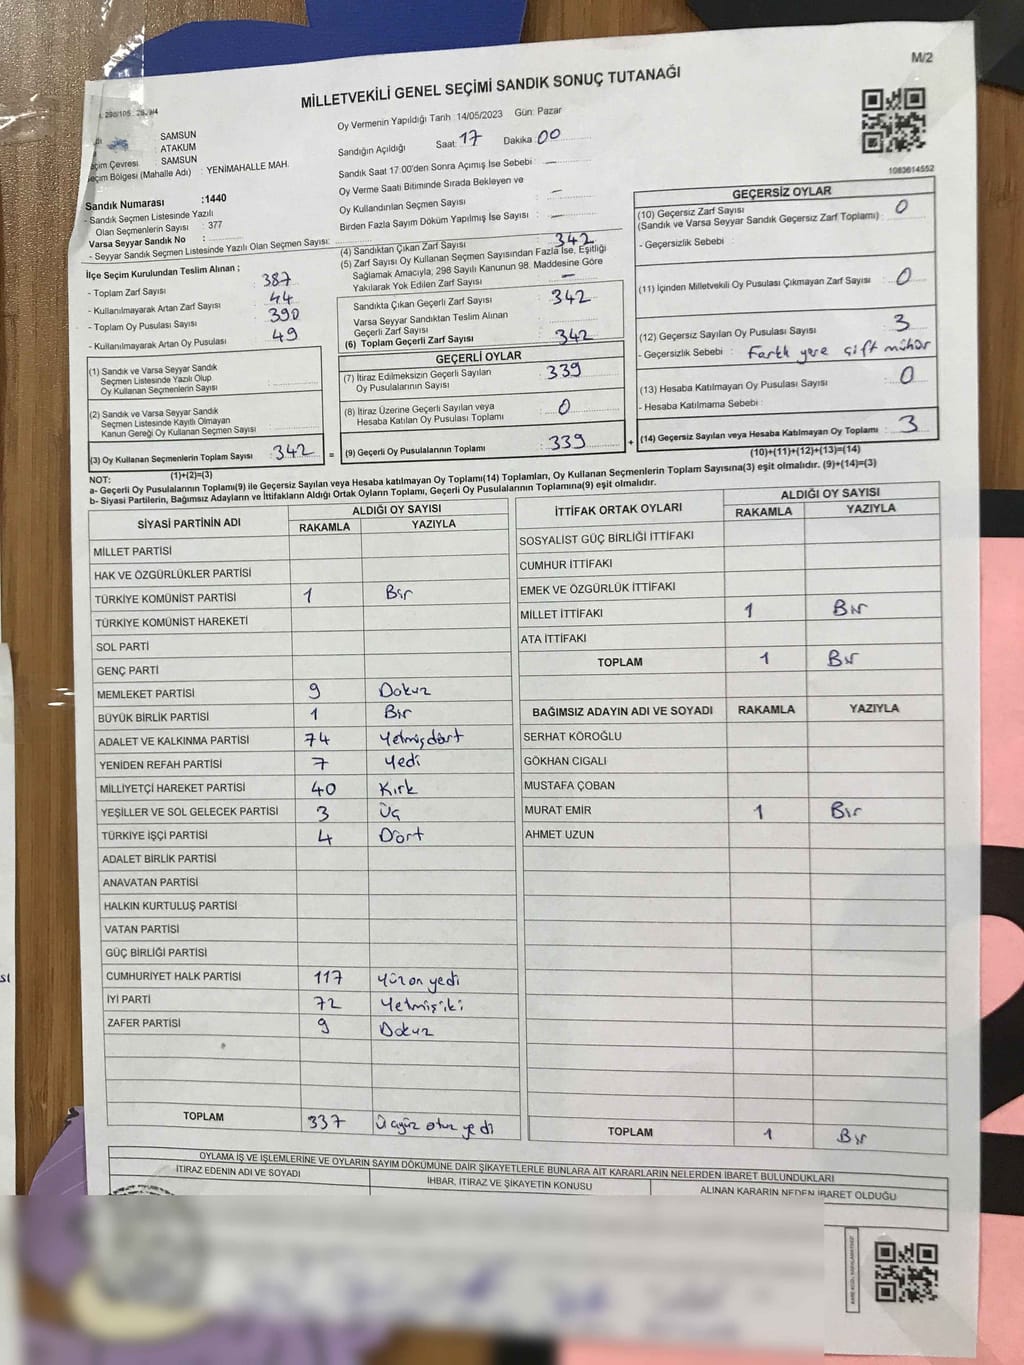 M/2
MİLLETVEKİLİ GENEL SEÇİMİ SANDIK SONUÇ TUTANAĞI
: SAMSUN
: ATAKUM
Seçim Çevresi : SAMSUN
Seçim Bölgesi (Mahalle Adı) : YENİMAHALLE MAH.
Sandık Numarası :1440
- Sandık Seçmen Listesinde Yazılı
Olan Seçmenlerin Sayısı : 377
Varsa Seyyar Sandık No :
- Seyyar Sandık Seçmen Listesinde Yazılı Olan Seçmen Sayısı:
İlçe Seçim Kurulundan Teslim Alınan ;
- Toplam Zarf Sayısı : 387
- Kullanılmayarak Artan Zarf Sayısı : 44
- Toplam Oy Pusulası Sayısı : 390
- Kullanılmayarak Artan Oy Pusulası : 49
(1) Sandık ve Varsa Seyyar Sandık
Seçmen Listesinde Yazılı Olup
Oy Kullanan Seçmenlerin Sayısı :
(2) Sandık ve Varsa Seyyar Sandık
Seçmen Listesinde Kayıtlı Olmayan
Kanun Gereği Oy Kullanan Seçmen Sayısı :
(3) Oy Kullanan Seçmenlerin Toplam Sayısı : 342
(1)+(2)=(3)
Oy Vermenin Yapıldığı Tarih :14/05/2023 Gün: Pazar
Sandığın Açıldığı Saat: 17 Dakika: 00
Sandık Saat 17.00'den Sonra Açımış İse Sebebi : —
Oy Verme Saati Bitiminde Sırada Bekleyen ve
Oy Kullandırılan Seçmen Sayısı : —
Birden Fazla Sayım Döküm Yapılmış İse Sayısı : —
(4) Sandıktan Çıkan Zarf Sayısı : 342
(5) Zarf Sayısı Oy Kullanan Seçmen Sayısından Fazla İse, Eşitliği
Sağlamak Amacıyla; 298 Sayılı Kanunun 98. Maddesine Göre
Yakılarak Yok Edilen Zarf Sayısı : —
Sandıkta Çıkan Geçerli Zarf Sayısı : 342
Varsa Seyyar Sandıktan Teslim Alınan
Geçerli Zarf Sayısı :
(6) Toplam Geçerli Zarf Sayısı : 342
GEÇERLİ OYLAR
(7) İtiraz Edilmeksizin Geçerli Sayılan
Oy Pusulalarının Sayısı : 339
(8) İtiraz Üzerine Geçerli Sayılan veya
Hesaba Katılan Oy Pusulası Toplamı : 0
= (9) Geçerli Oy Pusulalarının Toplamı : 339 +
1083614552
GEÇERSİZ OYLAR
(10) Geçersiz Zarf Sayısı
(Sandık ve Varsa Seyyar Sandık Geçersiz Zarf Toplamı) : 0
- Geçersizlik Sebebi :
(11) İçinden Milletvekili Oy Pusulası Çıkmayan Zarf Sayısı : 0
(12) Geçersiz Sayılan Oy Pusulası Sayısı : 3
- Geçersizlik Sebebi : Farklı yere çift mühür
(13) Hesaba Katılmayan Oy Pusulası Sayısı : 0
- Hesaba Katılmama Sebebi :
(14) Geçersiz Sayılan veya Hesaba Katılmayan Oy Toplamı : 3
(10)+(11)+(12)+(13)=(14)
NOT:
a- Geçerli Oy Pusulalarının Toplamı(9) ile Geçersiz Sayılan veya Hesaba katılmayan Oy Toplamı(14) Toplamları, Oy Kullanan Seçmenlerin Toplam Sayısına(3) eşit olmalıdır. (9)+(14)=(3)
b- Siyasi Partilerin, Bağımsız Adayların ve İttifakların Aldığı Ortak Oyların Toplamı, Geçerli Oy Pusulalarının Toplamına(9) eşit olmalıdır.
SİYASİ PARTİNİN ADI ALDIĞI OY SAYISI
RAKAMLA YAZIYLA
MİLLET PARTİSİ
HAK VE ÖZGÜRLÜKLER PARTİSİ
TÜRKİYE KOMÜNİST PARTİSİ 1 Bir
TÜRKİYE KOMÜNİST HAREKETİ
SOL PARTİ
GENÇ PARTİ
MEMLEKET PARTİSİ 9 Dokuz
BÜYÜK BİRLİK PARTİSİ 1 Bir
ADALET VE KALKINMA PARTİSİ 74 Yetmişdört
YENİDEN REFAH PARTİSİ 7 Yedi
MİLLİYETÇİ HAREKET PARTİSİ 40 Kırk
YEŞİLLER VE SOL GELECEK PARTİSİ 3 Üç
TÜRKİYE İŞÇİ PARTİSİ 4 Dört
ADALET BİRLİK PARTİSİ
ANAVATAN PARTİSİ
HALKIN KURTULUŞ PARTİSİ
VATAN PARTİSİ
GÜÇ BİRLİĞİ PARTİSİ
CUMHURİYET HALK PARTİSİ 117 Yüz on yedi
İYİ PARTİ 72 Yetmişiki
ZAFER PARTİSİ 9 Dokuz
TOPLAM 337 Üçyüz otuz yedi
İTTİFAK ORTAK OYLARI ALDIĞI OY SAYISI
RAKAMLA YAZIYLA
SOSYALİST GÜÇ BİRLİĞİ İTTİFAKI
CUMHUR İTTİFAKI
EMEK VE ÖZGÜRLÜK İTTİFAKI
MİLLET İTTİFAKI 1 Bir
ATA İTTİFAKI
TOPLAM 1 Bir
BAĞIMSIZ ADAYIN ADI VE SOYADI RAKAMLA YAZIYLA
SERHAT KÖROĞLU
GÖKHAN CIGALI
MUSTAFA ÇOBAN
MURAT EMİR 1 Bir
AHMET UZUN
TOPLAM 1 Bir
OYLAMA İŞ VE İŞLEMLERİNE VE OYLARIN SAYIM DÖKÜMÜNE DAİR ŞİKAYETLERLE BUNLARA AİT KARARLARIN NELERDEN İBARET BULUNDUKLARI
İTİRAZ EDENİN ADI VE SOYADI İHBAR, İTİRAZ VE ŞİKAYETİN KONUSU ALINAN KARARIN NEDEN İBARET OLDUĞU